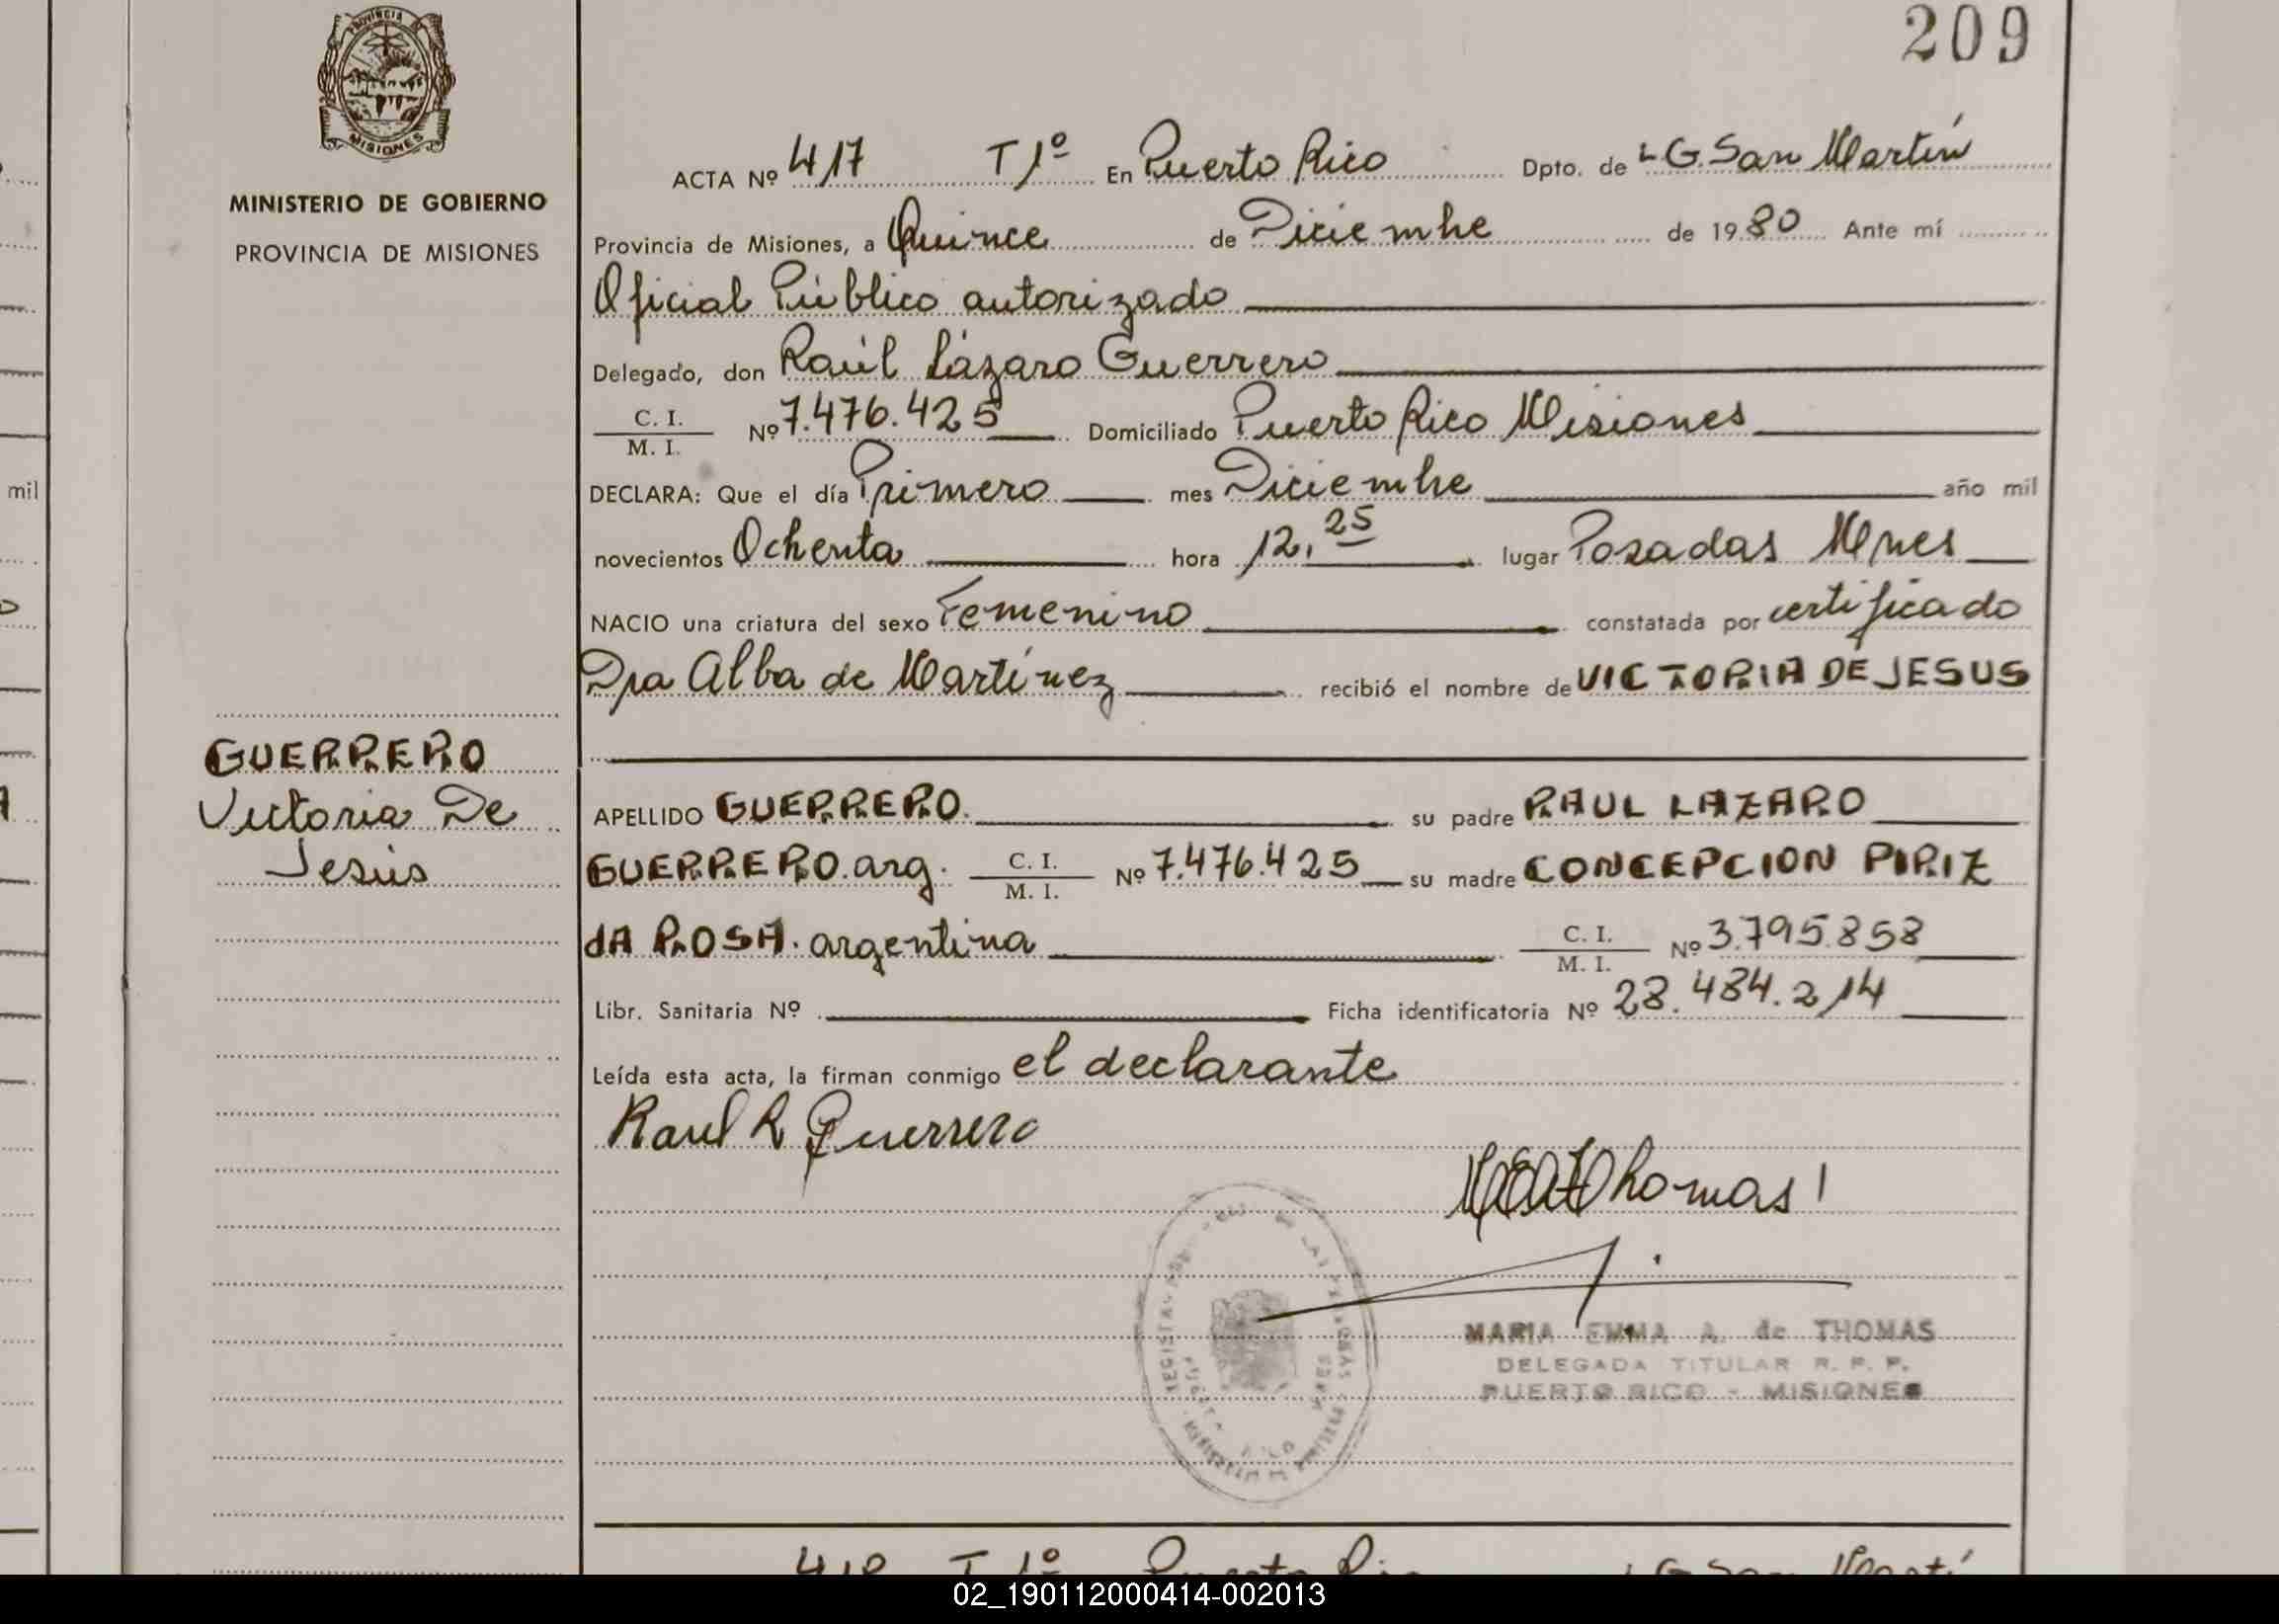 209
PROVINCIA
MISIONES
MINISTERIO DE GOBIERNO
PROVINCIA DE MISIONES
ACTA Nº 417 T 1º En Puerto Rico Dpto. de L G. San Martín
Provincia de Misiones, a Quince de Diciembre de 1980 Ante mí
Oficial Público autorizado
Delegado, don Raúl Lázaro Guerrero
C. I.
M. I. Nº 7.476.425 Domiciliado Puerto Rico Misiones
DECLARA: Que el día Primero mes Diciembre año mil
novecientos Ochenta hora 12,25 lugar Posadas Mnes
NACIO una criatura del sexo Femenino constatada por certificado
Dra Alba de Martínez recibió el nombre de VICTORIA DE JESUS
GUERRERO
Victoria De
Jesús
APELLIDO GUERRERO. su padre RAUL LAZARO
GUERRERO. arg. C. I.
M. I. Nº 7.476.425 su madre CONCEPCION PIRIZ
dA ROSA. argentina C. I.
M. I. Nº 3.795.858
Libr. Sanitaria Nº Ficha identificatoria Nº 28.484.214
Leída esta acta, la firman conmigo el declarante
Raul R Guerrero
Thomas
MARIA EMMA A. de THOMAS
DELEGADA TITULAR R. P. P.
PUERTO RICO - MISIONES
mil
418 T 1º Puerto Rico L G San Martí
02_190112000414-002013